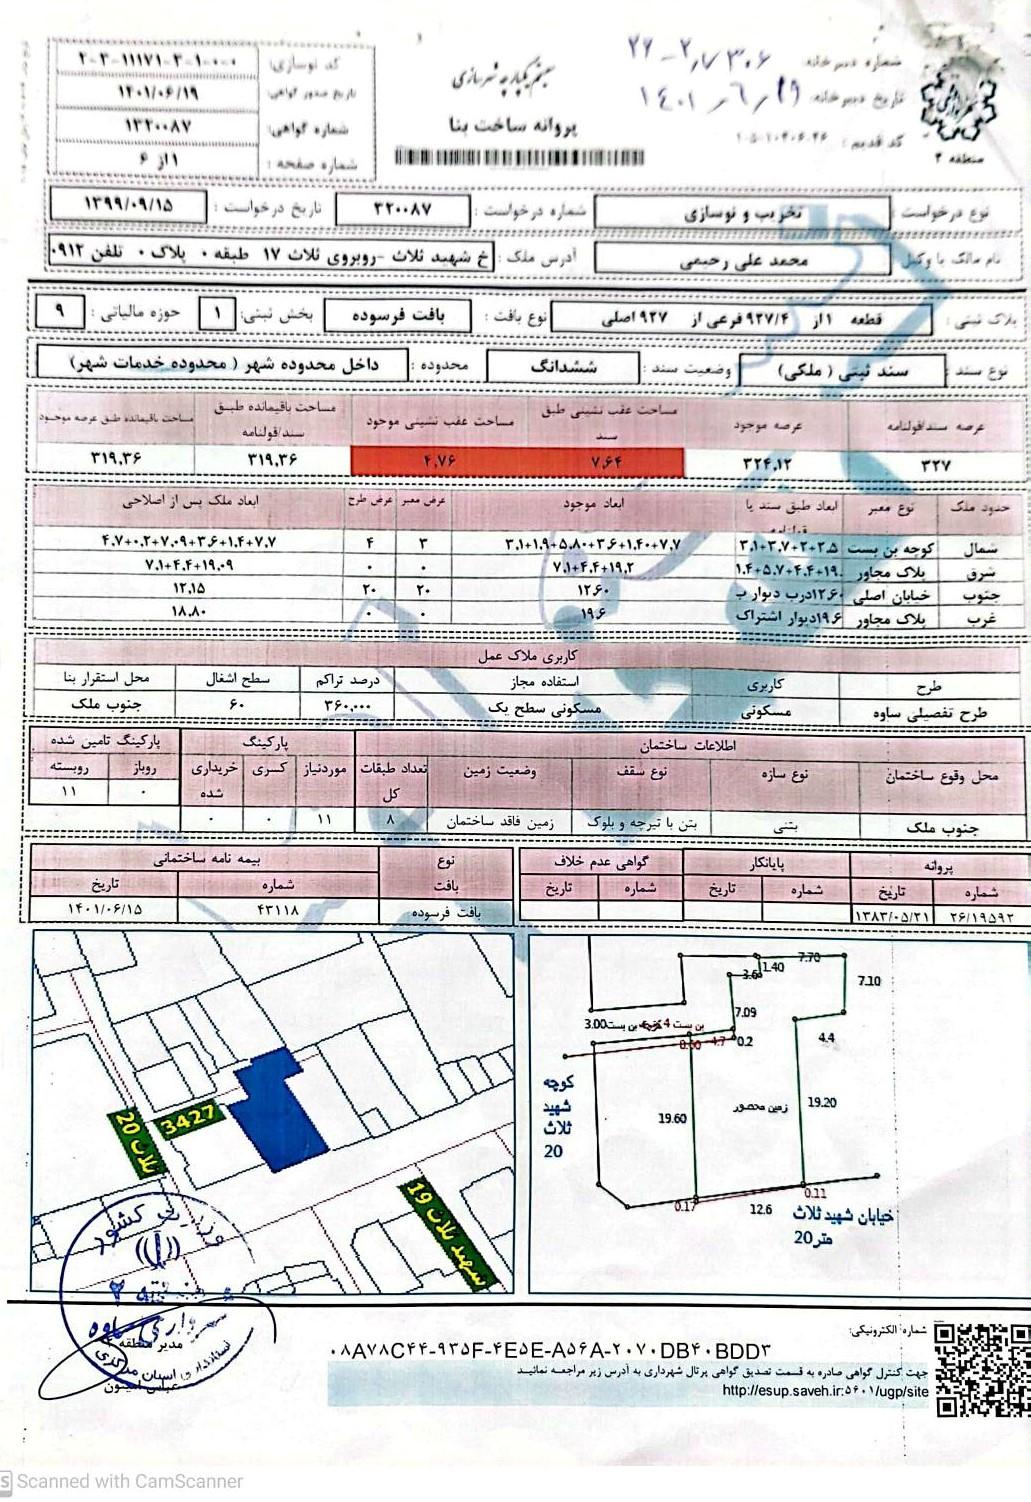 شماره دبیرخانه: ۲۶-۲/۷۳۰۶
تاریخ دبیرخانه: ۱۴۰۱/۶/۱۹
کد قدیم: ۱۰۵-۱۰۴۰۶۰۲۶
منطقه ۲
سیستم یکپارچه شهرسازی
پروانه ساخت بنا
کد نوسازی: ۲-۳-۱۱۱۷۱-۳-۱-۰-۰
تاریخ صدور گواهی: ۱۴۰۱/۰۶/۱۹
شماره گواهی: ۱۳۲۰۰۸۷
شماره صفحه : ۱از ۶
نوع درخواست : تخریب و نوسازی شماره درخواست : ۳۲۰۰۸۷ تاریخ درخواست : ۱۳۹۹/۰۹/۱۵
نام مالک یا وکیل محمد علی رحیمی آدرس ملک : خ شهید ثلاث -روبروی ثلاث ۱۷ طبقه ۰ پلاک ۰ تلفن ۰۹۱۲
پلاک ثبتی : قطعه ۱از ۹۲۷/۴ فرعی از ۹۲۷ اصلی نوع بافت : بافت فرسوده بخش ثبتی: ۱ حوزه مالیاتی : ۹
نوع سند : سند ثبتی ( ملکی) وضعیت سند : ششدانگ محدوده : داخل محدوده شهر ( محدوده خدمات شهر)
عرصه سند/قولنامه عرصه موجود مساحت عقب نشینی طبق سند مساحت عقب نشینی موجود مساحت باقیمانده طبق سند/قولنامه مساحت باقیمانده طبق عرصه موجود
۳۲۷ ۳۲۴.۱۲ ۷.۶۴ ۴.۷۶ ۳۱۹.۳۶ ۳۱۹.۳۶
حدود ملک نوع معبر ابعاد طبق سند یا قولنامه ابعاد موجود عرض معبر عرض طرح ابعاد ملک پس از اصلاحی
شمال کوچه بن بست ۳.۱+۳.۷+۲+۲.۵ ۳.۱+۱.۹+۵.۸۰+۳.۶+۱.۴۰+۷.۷ ۳ ۴ ۴.۷+۰.۲+۷.۰۹+۳.۶+۱.۴+۷.۷
شرق پلاک مجاور ۱.۴+۵.۷+۴.۴+۱۹. ۷.۱+۴.۴+۱۹.۲ ۰ ۰ ۷.۱+۴.۴+۱۹.۰۹
جنوب خیابان اصلی ۱۲.۶۰درب دیوار ب ۱۲.۶۰ ۲۰ ۲۰ ۱۲.۱۵
غرب پلاک مجاور ۱۹.۶دیوار اشتراک ۱۹.۶ ۰ ۰ ۱۸.۸۰
کاربری ملاک عمل
طرح کاربری استفاده مجاز درصد تراکم سطح اشغال محل استقرار بنا
طرح تفصیلی ساوه مسکونی مسکونی سطح یک ۳۶۰.۰۰۰ ۶۰ جنوب ملک
اطلاعات ساختمان پارکینگ پارکینگ تامین شده
محل وقوع ساختمان نوع سازه نوع سقف وضعیت زمین تعداد طبقات کل موردنیاز کسری خریداری شده روباز روبسته
جنوب ملک بتنی بتن با تیرچه و بلوک زمین فاقد ساختمان ۸ ۱۱ ۰ ۰ ۰ ۱۱
پروانه پایانکار گواهی عدم خلاف نوع بافت بیمه نامه ساختمانی
شماره تاریخ شماره تاریخ شماره تاریخ شماره تاریخ
۲۶/۱۹۵۹۲ ۱۳۸۳/۰۵/۲۱ بافت فرسوده ۴۳۱۱۸ ۱۴۰۱/۰۶/۱۵
7.70
1.40
3.6
7.10
7.09
3.00
بن بست
0.2
4.7
4.4
19.60
زمین محصور
19.20
کوچه شهید ثلاث 20
0.17
12.6
0.11
خیابان شهید ثلاث
20 متر
ثلاث 20
3427
شهید ثلاث 19
وزارت کشور
مدیر منطقه
شماره الکترونیکی:
۰۸A۷۸C۴۴-۹۳۵F-۴E۵E-A۵۶A-۲۰۷۰DB۴۰BDD۳
جهت کنترل گواهی صادره به قسمت تصدیق گواهی پرتال شهرداری به آدرس زیر مراجعه نمائید
http://esup.saveh.ir:۵۶۰۱/ugp/site
Scanned with CamScanner